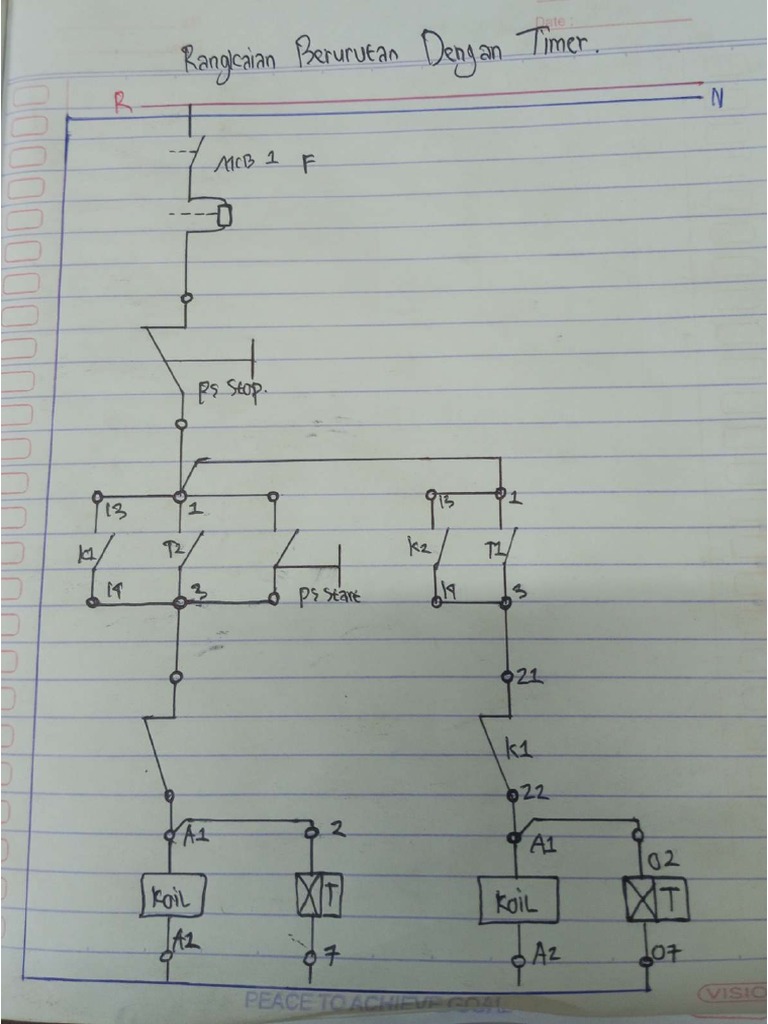 Date :
Rangkaian Berurutan Dengan Timer.
R
N
MCB 1 F
PS Stop.
13 1 13 1
K1 T2 K2 T1
14 3 PS Start 14 3
21
K1
22
A1 2 A1 02
Koil T Koil T
A2 7 A2 07
PEACE TO ACHIEVE GOAL
VISIO